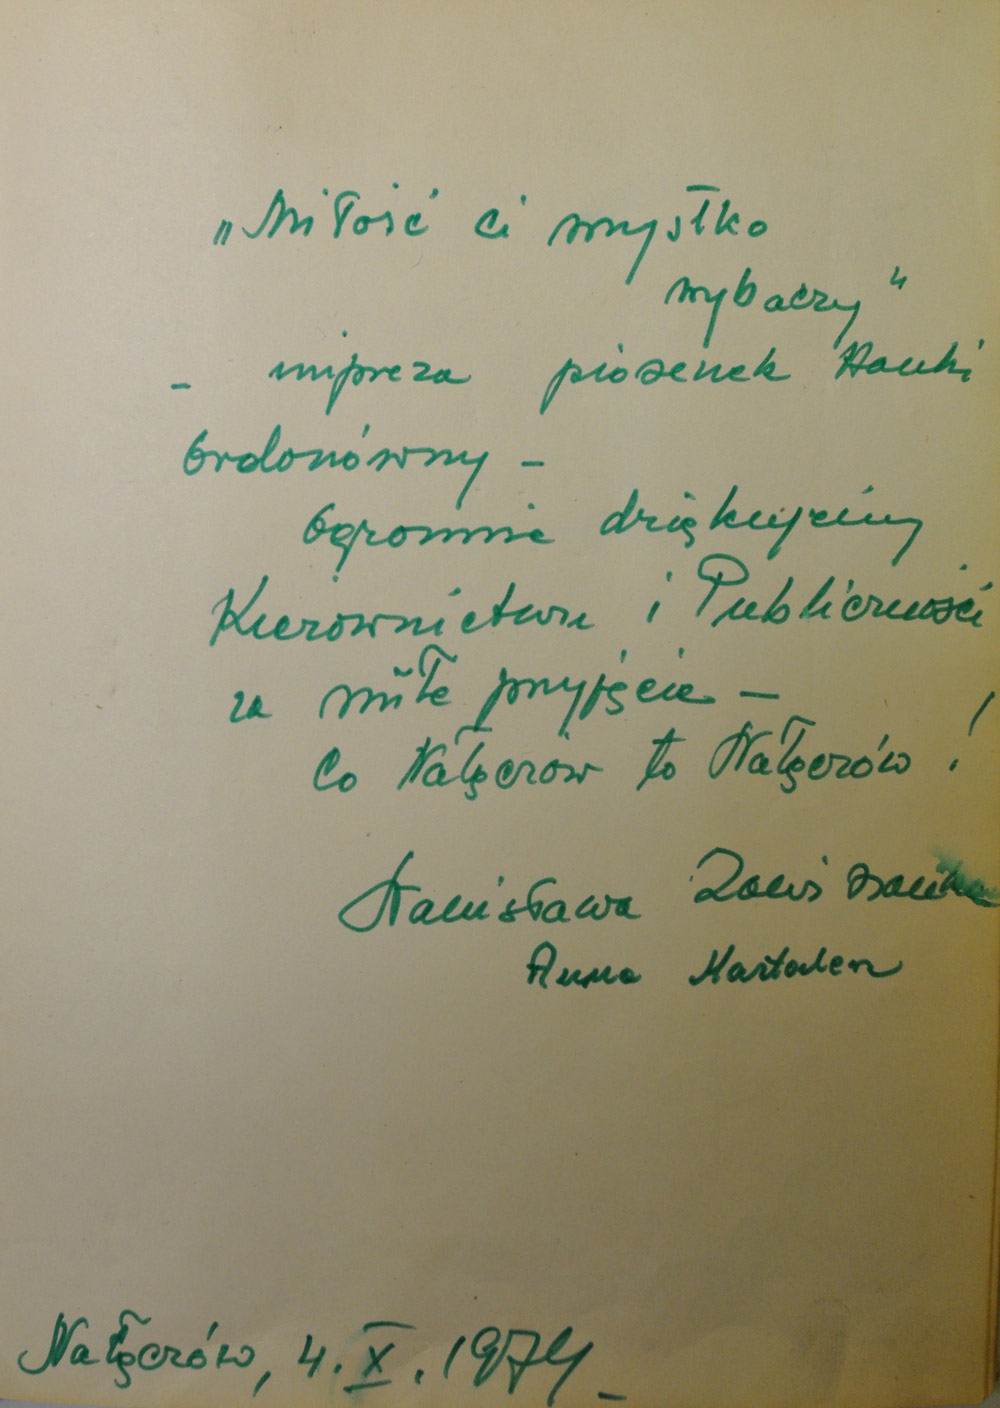 „Miłość ci wszystko
wybaczy"
- impreza piosenek Hanki
Ordonówny -
Ogromnie dziękujemy
Kierownictwu i Publiczności
za miłe przyjęcie -
Co Nałęczów to Nałęczów!
Stanisława Zawiszanka
Anna
Nałęczów, 4.X.1974_